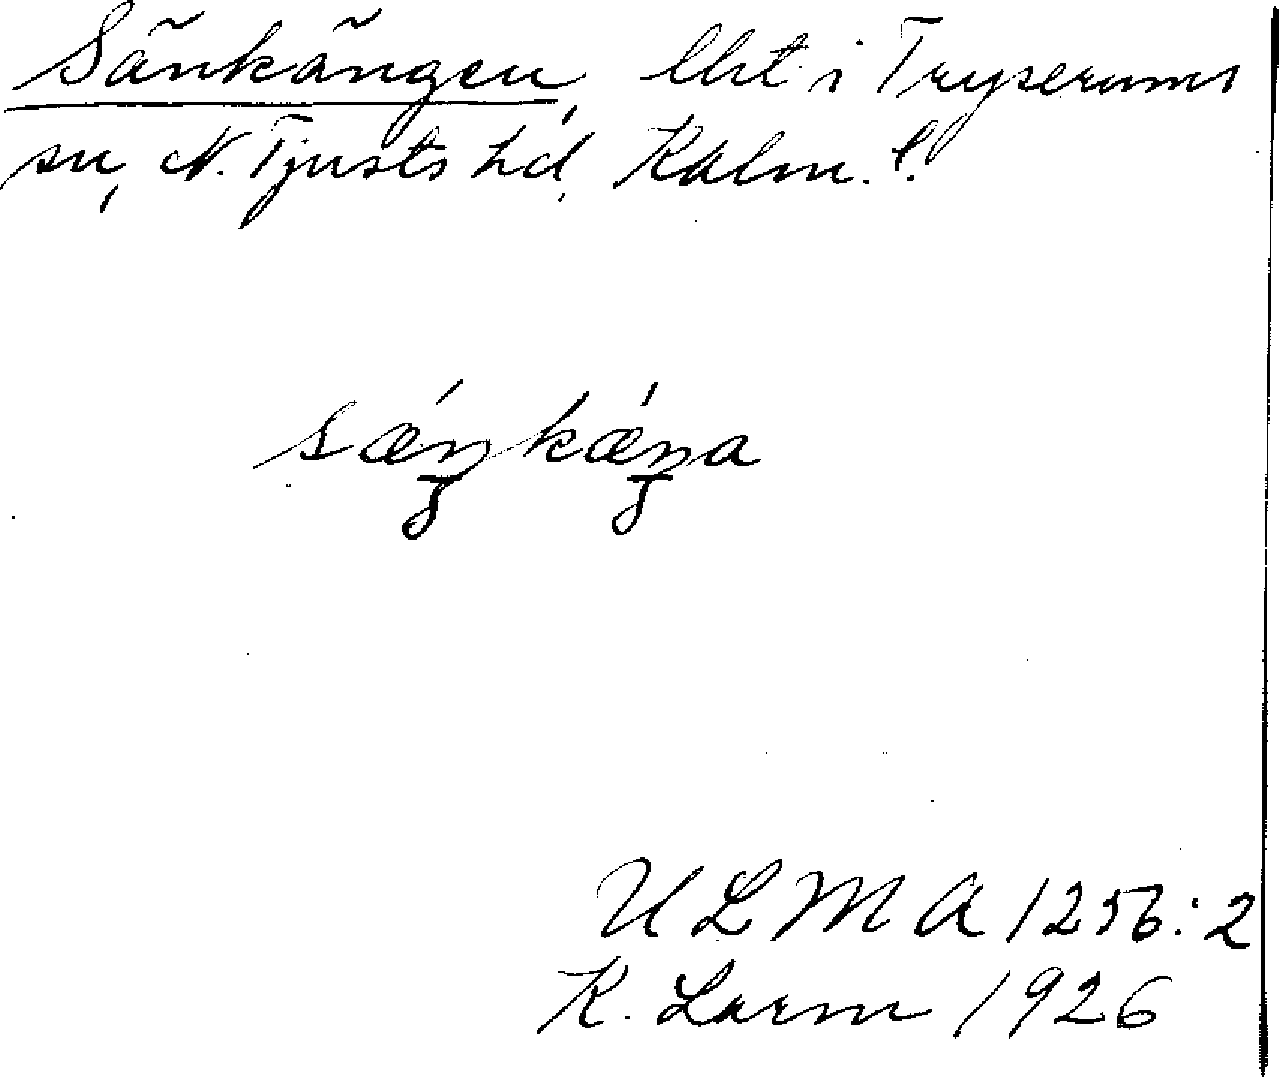 Sänkängen, lht i Tryserums
sn, N. Tjusts hd, Kalm. l.
sǽŋkǽŋa
ULMA 1256:2
K. Larm 1926